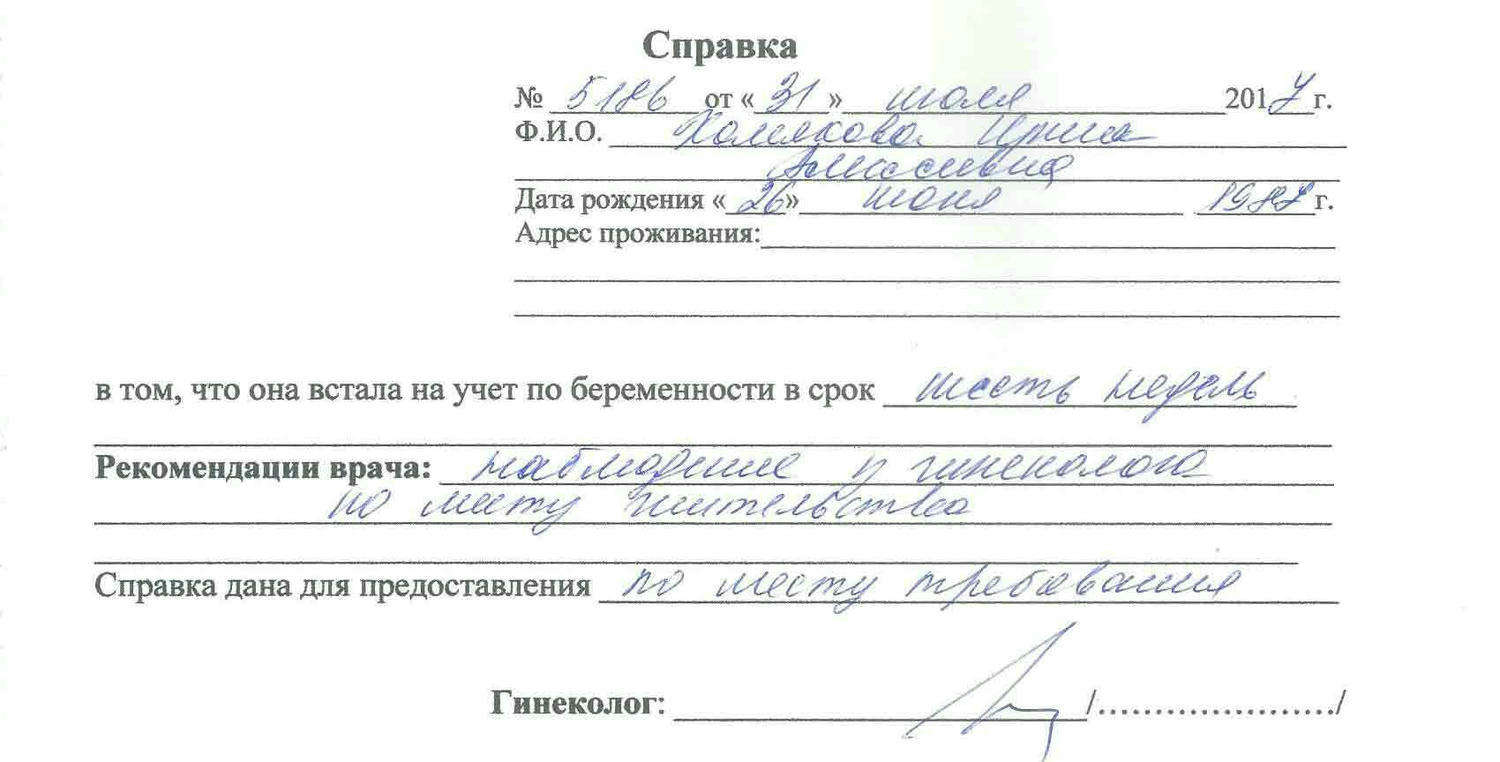 Справка
№ 5186 от « 31 » июля 2017 г.
Ф.И.О. Хомякова Ирина
Алексеевна
Дата рождения « 26 » июня 1987 г.
Адрес проживания:
в том, что она встала на учет по беременности в срок шесть недель
Рекомендации врача: наблюдение у гинеколога
по месту жительства
Справка дана для предоставления по месту требования
Гинеколог: /...................../